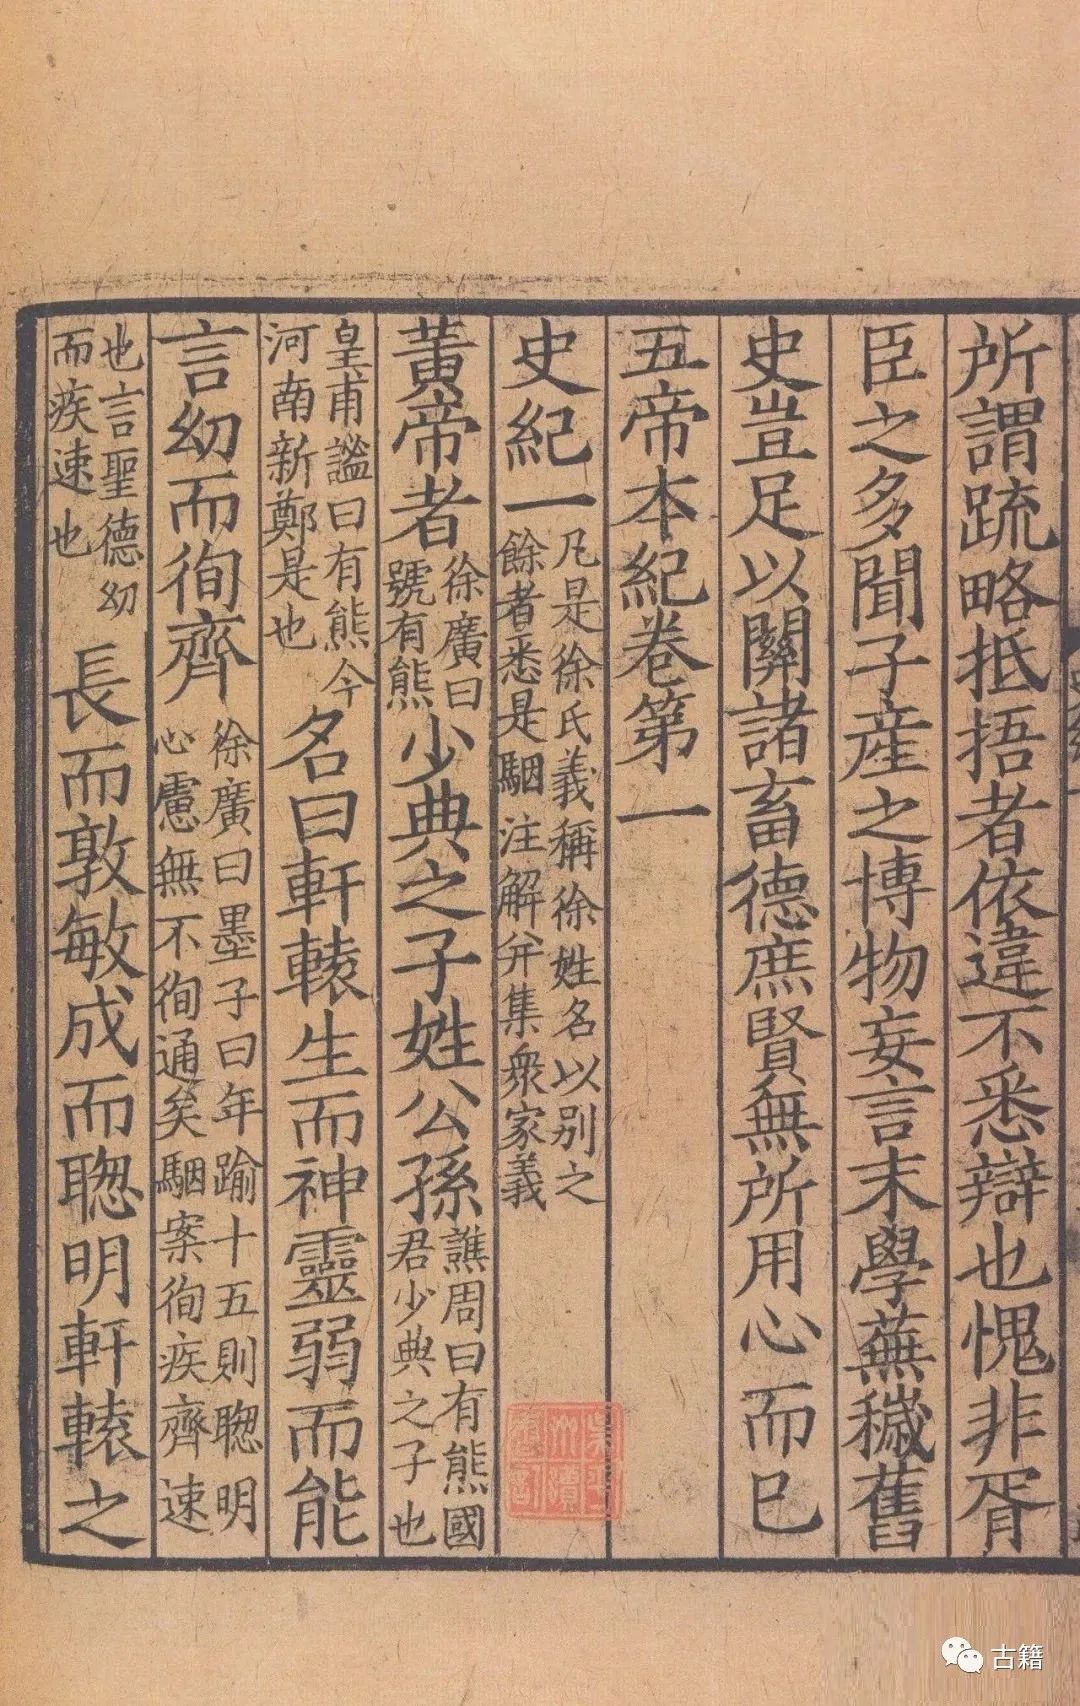 所謂䟽略抵捂者依違不悉辯也愧非胥
臣之多聞子産之博物妄言末學蕪穢舊
史豈足以關諸畜德庶賢無所用心而已
五帝本紀卷第一
史紀一凡是徐氏義稱徐姓名以别之餘者悉是駰注解并集衆家義
黃帝者徐廣曰號有熊少典之子姓公孫譙周曰有熊國君少典之子也
皇甫謐曰有熊今河南新鄭是也名曰軒轅生而神靈弱而能
言幼而徇齊徐廣曰墨子曰年踰十五則聦明心慮無不徇通矣駰案徇疾齊速
也言聖德幼而疾速也長而敦敏成而聦明軒轅之
古籍